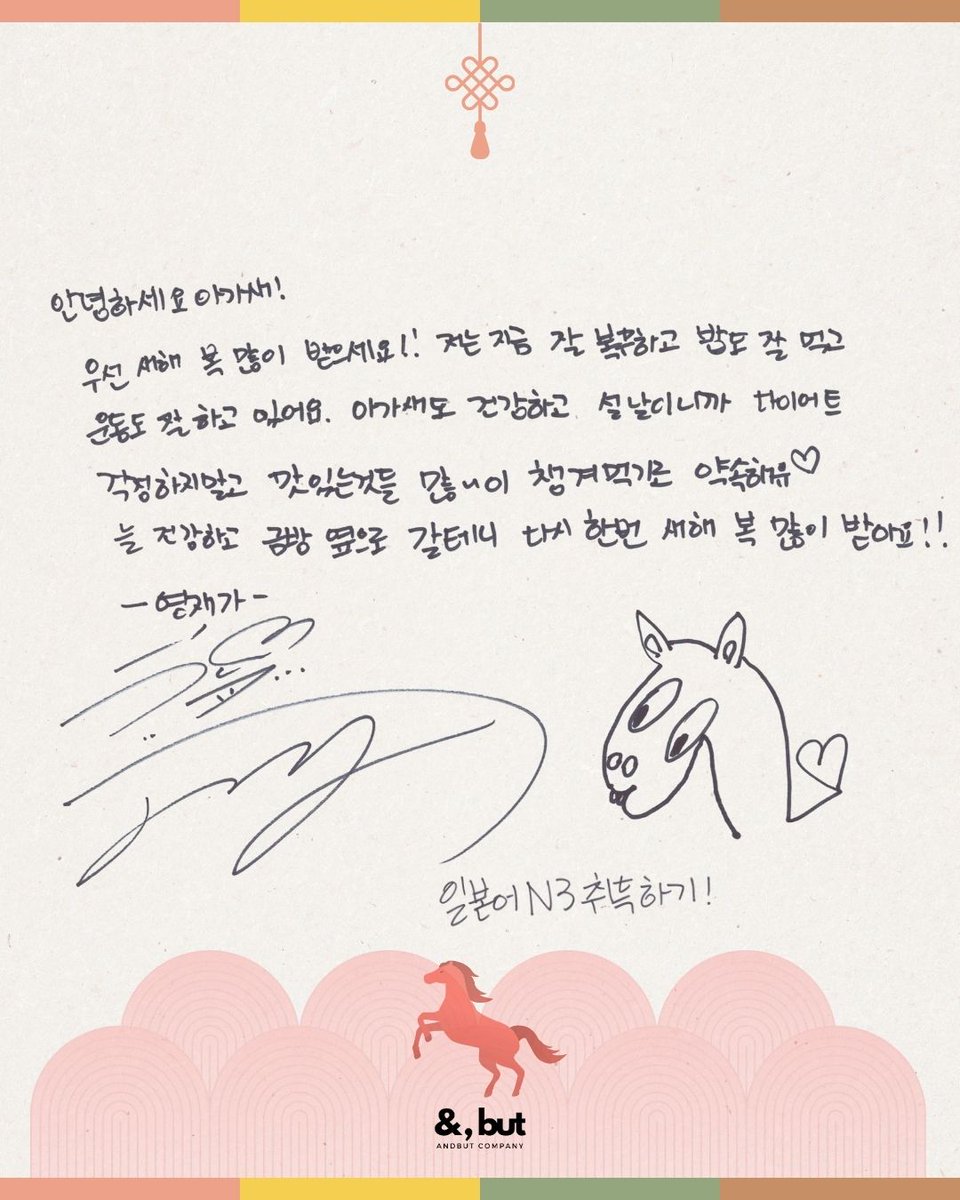 안녕하세요 아가새!
우선 새해 복 많이 받으세요!! 저는 지금 잘 복무하고 밥도 잘 먹고
운동도 잘 하고 있어요. 아가새도 건강하고 설날이니까 다이어트
걱정하지말고 맛있는것들 많이 챙겨먹기로 약속해유♡
늘 건강하고 금방 옆으로 갈테니 다시 한번 새해 복 많이 받아요!!
- 영재가 -
일본어 N3 취득하기!
&, but
ANDBUT COMPANY